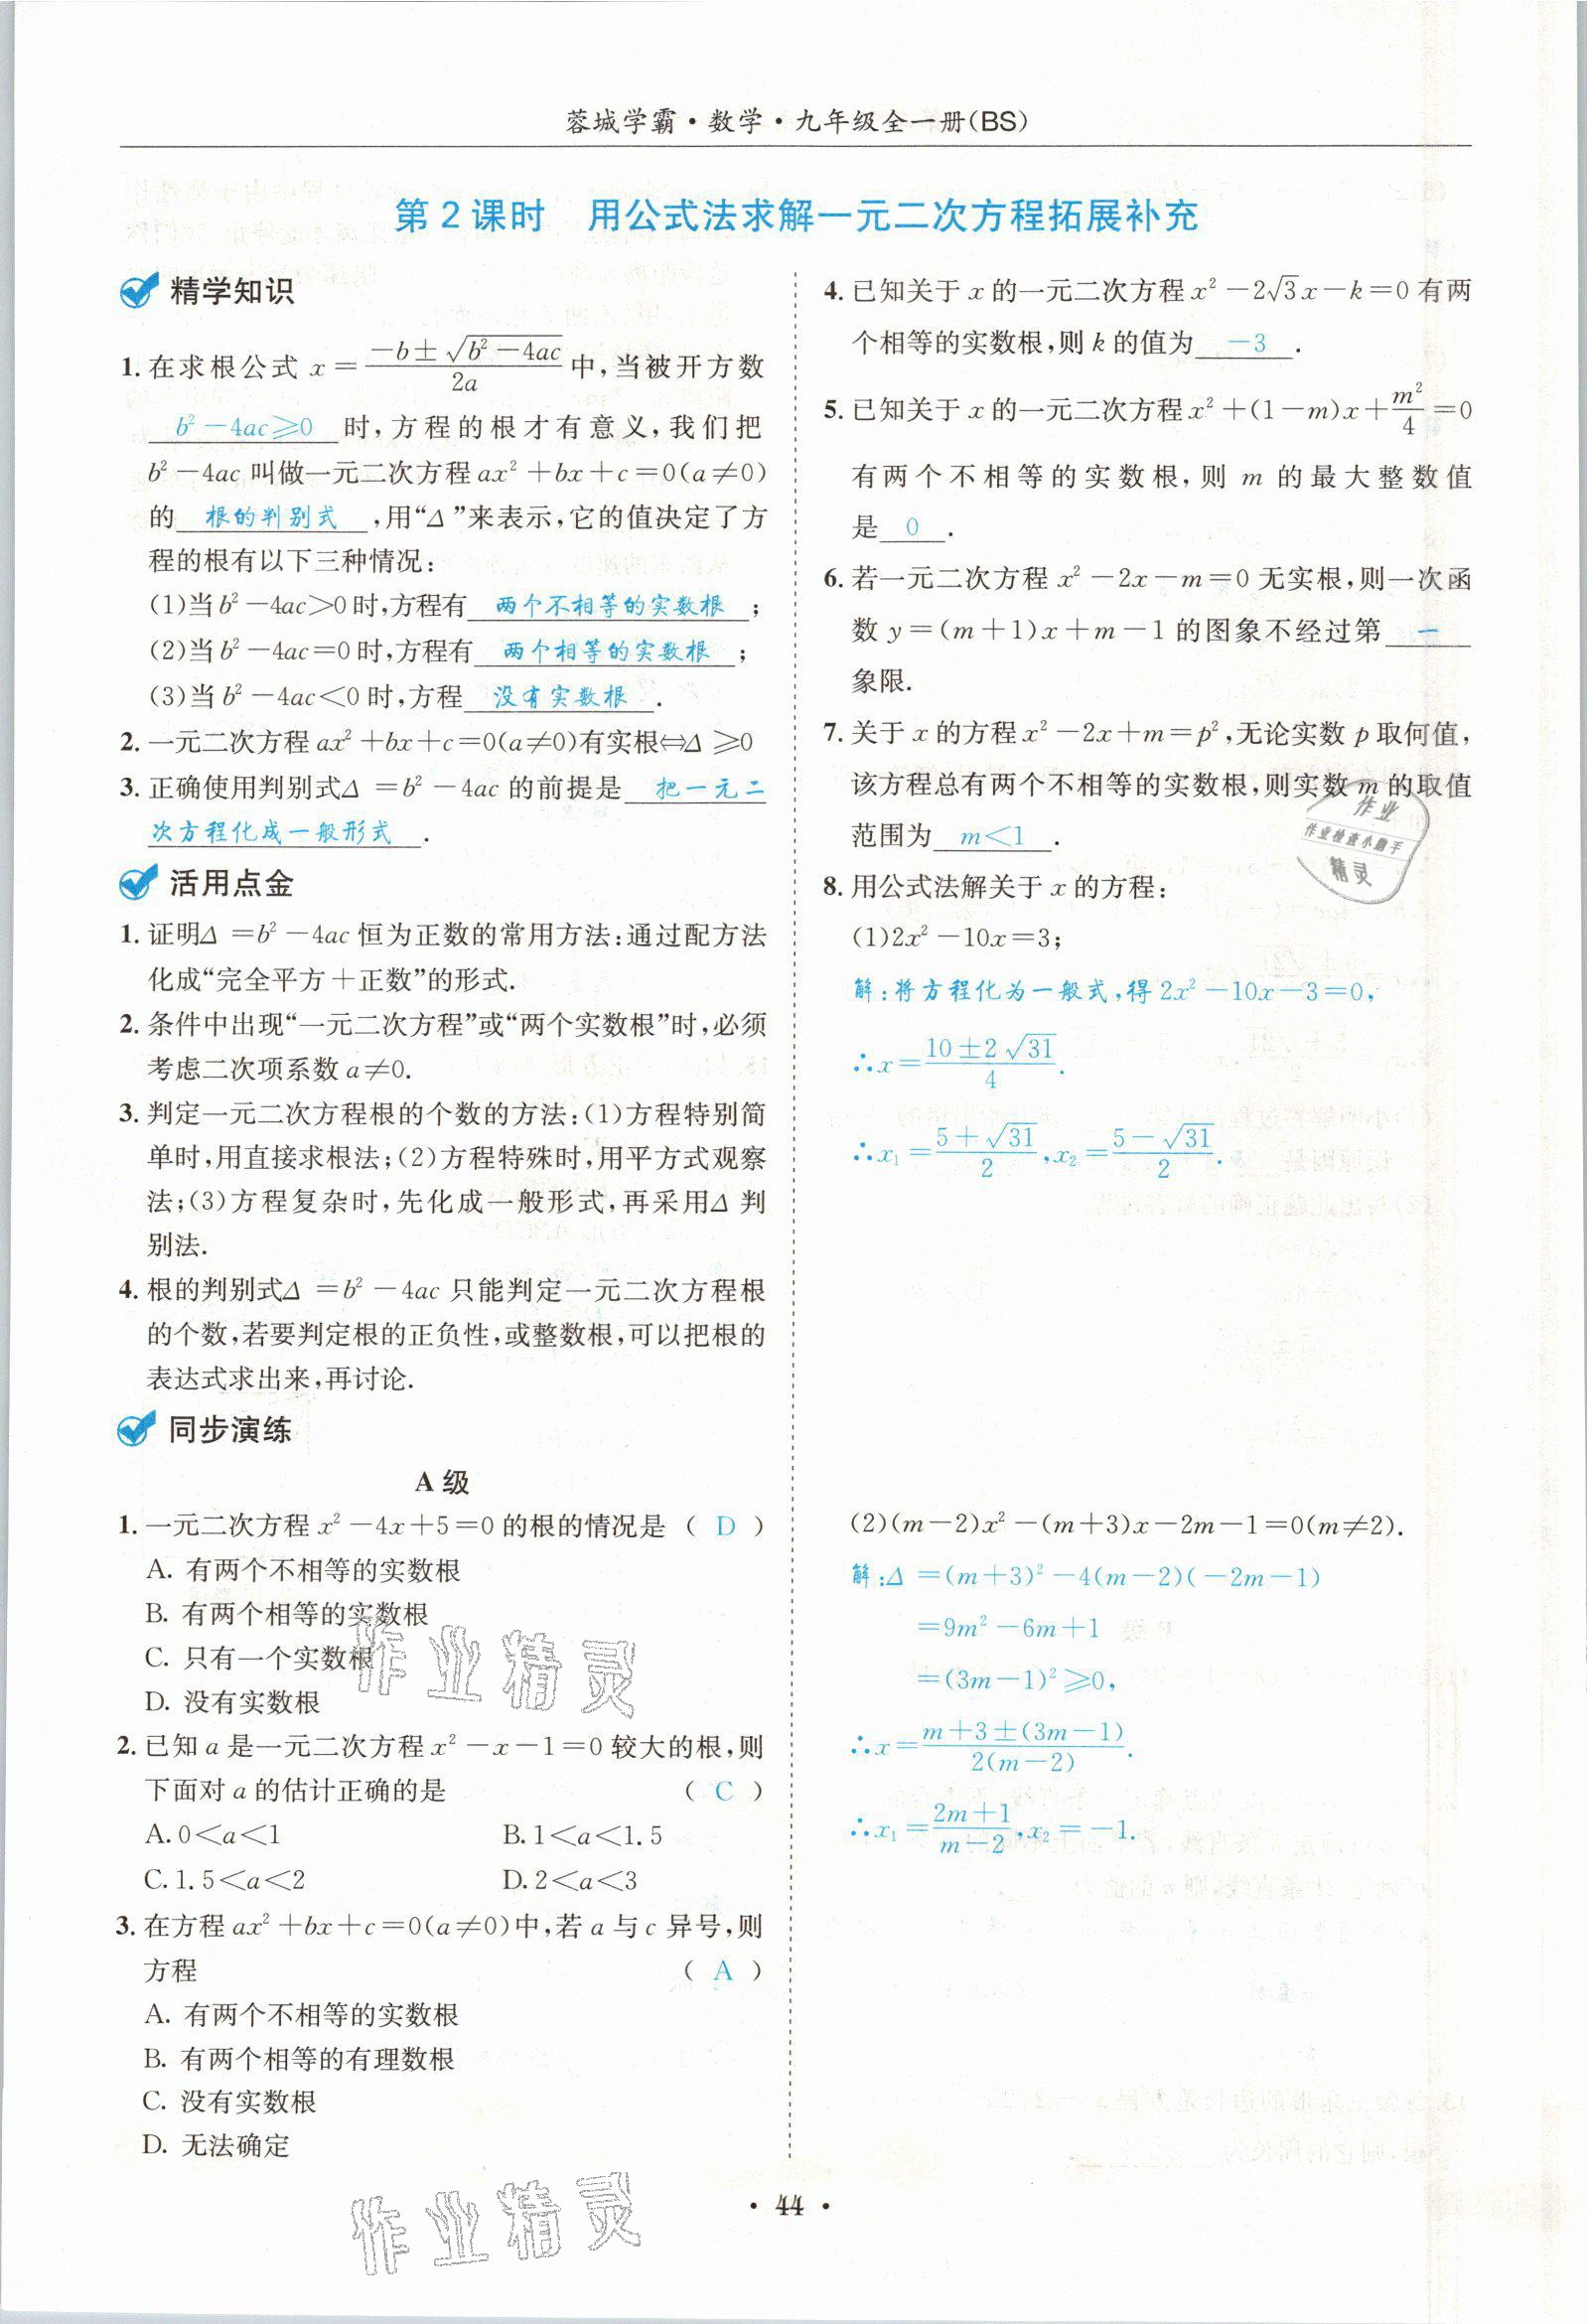 蓉城学霸·数学·九年级全一册(BS)
第2课时 用公式法求解一元二次方程拓展补充
精学知识
1. 在求根公式 x=\frac{-b±\sqrt{b²-4ac}}{2a} 中,当被开方数
b²-4ac≥0 时,方程的根才有意义,我们把
b²-4ac 叫做一元二次方程 ax²+bx+c=0(a≠0)
的 根的判别式 ,用“Δ”来表示,它的值决定了方
程的根有以下三种情况:
(1)当 b²-4ac>0 时,方程有 两个不相等的实数根 ;
(2)当 b²-4ac=0 时,方程有 两个相等的实数根 ;
(3)当 b²-4ac<0 时,方程 没有实数根 .
2. 一元二次方程 ax²+bx+c=0(a≠0)有实根⇔Δ≥0
3. 正确使用判别式Δ=b²-4ac 的前提是 把一元二
次方程化成一般形式 .
活用点金
1. 证明Δ=b²-4ac 恒为正数的常用方法:通过配方法
化成“完全平方+正数”的形式.
2. 条件中出现“一元二次方程”或“两个实数根”时,必须
考虑二次项系数 a≠0.
3. 判定一元二次方程根的个数的方法:(1)方程特别简
单时,用直接求根法;(2)方程特殊时,用平方式观察
法;(3)方程复杂时,先化成一般形式,再采用Δ判
别法.
4. 根的判别式Δ=b²-4ac 只能判定一元二次方程根
的个数,若要判定根的正负性,或整数根,可以把根的
表达式求出来,再讨论.
同步演练
A级
1. 一元二次方程 x²-4x+5=0 的根的情况是 ( D )
A. 有两个不相等的实数根
B. 有两个相等的实数根
C. 只有一个实数根
D. 没有实数根
2. 已知 a 是一元二次方程 x²-x-1=0 较大的根,则
下面对 a 的估计正确的是 ( C )
A. 0<a<1 B. 1<a<1.5
C. 1.5<a<2 D. 2<a<3
3. 在方程 ax²+bx+c=0(a≠0)中,若 a 与 c 异号,则
方程 ( A )
A. 有两个不相等的实数根
B. 有两个相等的有理数根
C. 没有实数根
D. 无法确定
4. 已知关于 x 的一元二次方程 x²-2√3x-k=0 有两
个相等的实数根,则 k 的值为 -3 .
5. 已知关于 x 的一元二次方程 x²+(1-m)x+\frac{m²}{4}=0
有两个不相等的实数根,则 m 的最大整数值
是 0 .
6. 若一元二次方程 x²-2x-m=0 无实根,则一次函
数 y=(m+1)x+m-1 的图象不经过第 一
象限.
7. 关于 x 的方程 x²-2x+m=p²,无论实数 p 取何值,
该方程总有两个不相等的实数根,则实数 m 的取值
范围为 m<1 .
8. 用公式法解关于 x 的方程:
(1)2x²-10x=3;
解:将方程化为一般式,得 2x²-10x-3=0,
∴x=\frac{10±2\sqrt{31}}{4}.
∴x₁=\frac{5+\sqrt{31}}{2},x₂=\frac{5-\sqrt{31}}{2}.
(2)(m-2)x²-(m+3)x-2m-1=0(m≠2).
解:Δ=(m+3)²-4(m-2)(-2m-1)
=9m²-6m+1
=(3m-1)²≥0,
∴x=\frac{m+3±(3m-1)}{2(m-2)}.
∴x₁=\frac{2m+1}{m-2},x₂=-1.
作业
作业检查小助手
精灵
作业精灵
作业精灵
· 44 ·